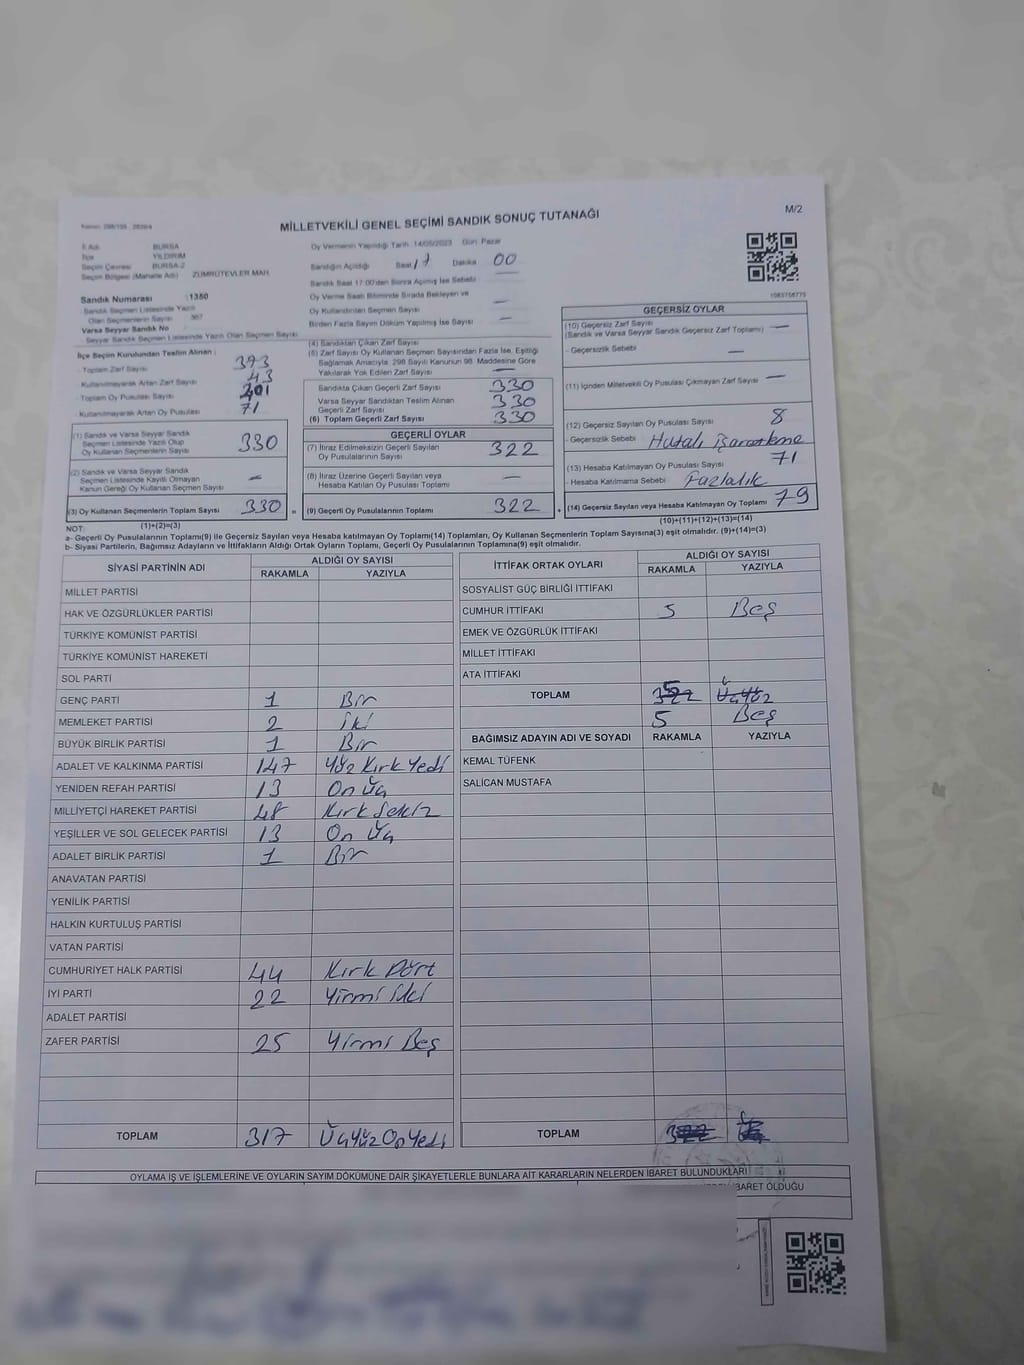 M/2
MİLLETVEKİLİ GENEL SEÇİMİ SANDIK SONUÇ TUTANAĞI
İl Adı BURSA
İlçe YILDIRIM
Seçim Çevresi BURSA-2
Seçim Bölgesi (Mahalle Adı) ZÜMRÜTEVLER MAH.
Sandık Numarası :1350
Sandık Seçmen Listesinde Yazılı
Olan Seçmenlerin Sayısı 367
Varsa Seyyar Sandık No
Seyyar Sandık Seçmen Listesinde Yazılı Olan Seçmen Sayısı
İlçe Seçim Kurulundan Teslim Alınan :
- Toplam Zarf Sayısı 393
- Kullanılmayarak Artan Zarf Sayısı 43
- Toplam Oy Pusulası Sayısı 401
- Kullanılmayarak Artan Oy Pusulası 71
(1) Sandık ve Varsa Seyyar Sandık
Seçmen Listesinde Yazılı Olup
Oy Kullanan Seçmenlerin Sayısı 330
(2) Sandık ve Varsa Seyyar Sandık
Seçmen Listesinde Kayıtlı Olmayan
Kanun Gereği Oy Kullanan Seçmen Sayısı —
(3) Oy Kullanan Seçmenlerin Toplam Sayısı 330 =
Oy Vermenin Yapıldığı Tarih 14/05/2023 Gün: Pazar
Sandığın Açıldığı Saat 17 Dakika 00
Sandık Saat 17:00'den Sonra Açılmış İse Sebebi —
Oy Verme Saati Bitiminde Sırada Bekleyen ve
Oy Kullandırılan Seçmen Sayısı —
Birden Fazla Sayım Döküm Yapılmış İse Sayısı —
(4) Sandıktan Çıkan Zarf Sayısı
(5) Zarf Sayısı Oy Kullanan Seçmen Sayısından Fazla İse, Eşitliği
Sağlamak Amacıyla; 298 Sayılı Kanunun 98. Maddesine Göre
Yakılarak Yok Edilen Zarf Sayısı —
Sandıkta Çıkan Geçerli Zarf Sayısı 330
Varsa Seyyar Sandıktan Teslim Alınan
Geçerli Zarf Sayısı 330
(6) Toplam Geçerli Zarf Sayısı 330
GEÇERLİ OYLAR
(7) İtiraz Edilmeksizin Geçerli Sayılan
Oy Pusulalarının Sayısı 322
(8) İtiraz Üzerine Geçerli Sayılan veya
Hesaba Katılan Oy Pusulası Toplamı —
(9) Geçerli Oy Pusulalarının Toplamı 322 +
GEÇERSİZ OYLAR
(10) Geçersiz Zarf Sayısı
(Sandık ve Varsa Seyyar Sandık Geçersiz Zarf Toplamı) —
- Geçersizlik Sebebi —
(11) İçinden Milletvekili Oy Pusulası Çıkmayan Zarf Sayısı —
(12) Geçersiz Sayılan Oy Pusulası Sayısı 8
- Geçersizlik Sebebi Hatalı işaretleme
(13) Hesaba Katılmayan Oy Pusulası Sayısı 71
- Hesaba Katılmama Sebebi Fazlalık
(14) Geçersiz Sayılan veya Hesaba Katılmayan Oy Toplamı 79
NOT: (1)+(2)=(3) (10)+(11)+(12)+(13)=(14)
a- Geçerli Oy Pusulalarının Toplamı(9) ile Geçersiz Sayılan veya Hesaba katılmayan Oy Toplamı(14) Toplamları, Oy Kullanan Seçmenlerin Toplam Sayısına(3) eşit olmalıdır. (9)+(14)=(3)
b- Siyasi Partilerin, Bağımsız Adayların ve İttifakların Aldığı Ortak Oyların Toplamı, Geçerli Oy Pusulalarının Toplamına(9) eşit olmalıdır.
SİYASİ PARTİNİN ADI ALDIĞI OY SAYISI
RAKAMLA YAZIYLA
MİLLET PARTİSİ
HAK VE ÖZGÜRLÜKLER PARTİSİ
TÜRKİYE KOMÜNİST PARTİSİ
TÜRKİYE KOMÜNİST HAREKETİ
SOL PARTİ
GENÇ PARTİ 1 Bir
MEMLEKET PARTİSİ 2 iki
BÜYÜK BİRLİK PARTİSİ 1 Bir
ADALET VE KALKINMA PARTİSİ 147 Yüz Kırk Yedi
YENİDEN REFAH PARTİSİ 13 On Üç
MİLLİYETÇİ HAREKET PARTİSİ 48 Kırk Sekiz
YEŞİLLER VE SOL GELECEK PARTİSİ 13 On Üç
ADALET BİRLİK PARTİSİ 1 Bir
ANAVATAN PARTİSİ
YENİLİK PARTİSİ
HALKIN KURTULUŞ PARTİSİ
VATAN PARTİSİ
CUMHURİYET HALK PARTİSİ 44 Kırk Dört
İYİ PARTİ 22 Yirmi iki
ADALET PARTİSİ
ZAFER PARTİSİ 25 Yirmi Beş
TOPLAM 317 Üçyüz On Yedi
İTTİFAK ORTAK OYLARI ALDIĞI OY SAYISI
RAKAMLA YAZIYLA
SOSYALİST GÜÇ BİRLİĞİ İTTİFAKI
CUMHUR İTTİFAKI 5 Beş
EMEK VE ÖZGÜRLÜK İTTİFAKI
MİLLET İTTİFAKI
ATA İTTİFAKI
TOPLAM 322 Üçyüz
5 Beş
BAĞIMSIZ ADAYIN ADI VE SOYADI RAKAMLA YAZIYLA
KEMAL TÜFENK
SALİCAN MUSTAFA
TOPLAM 322
OYLAMA İŞ VE İŞLEMLERİNE VE OYLARIN SAYIM DÖKÜMÜNE DAİR ŞİKAYETLERLE BUNLARA AİT KARARLARIN NELERDEN İBARET BULUNDUKLARI
İBARET OLDUĞU